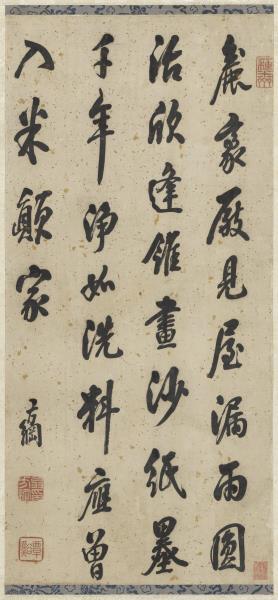 麄豪厭見屋漏雨圓
活欣逢錐畫沙紙墨
千年淨如洗料應曾
入米顛家